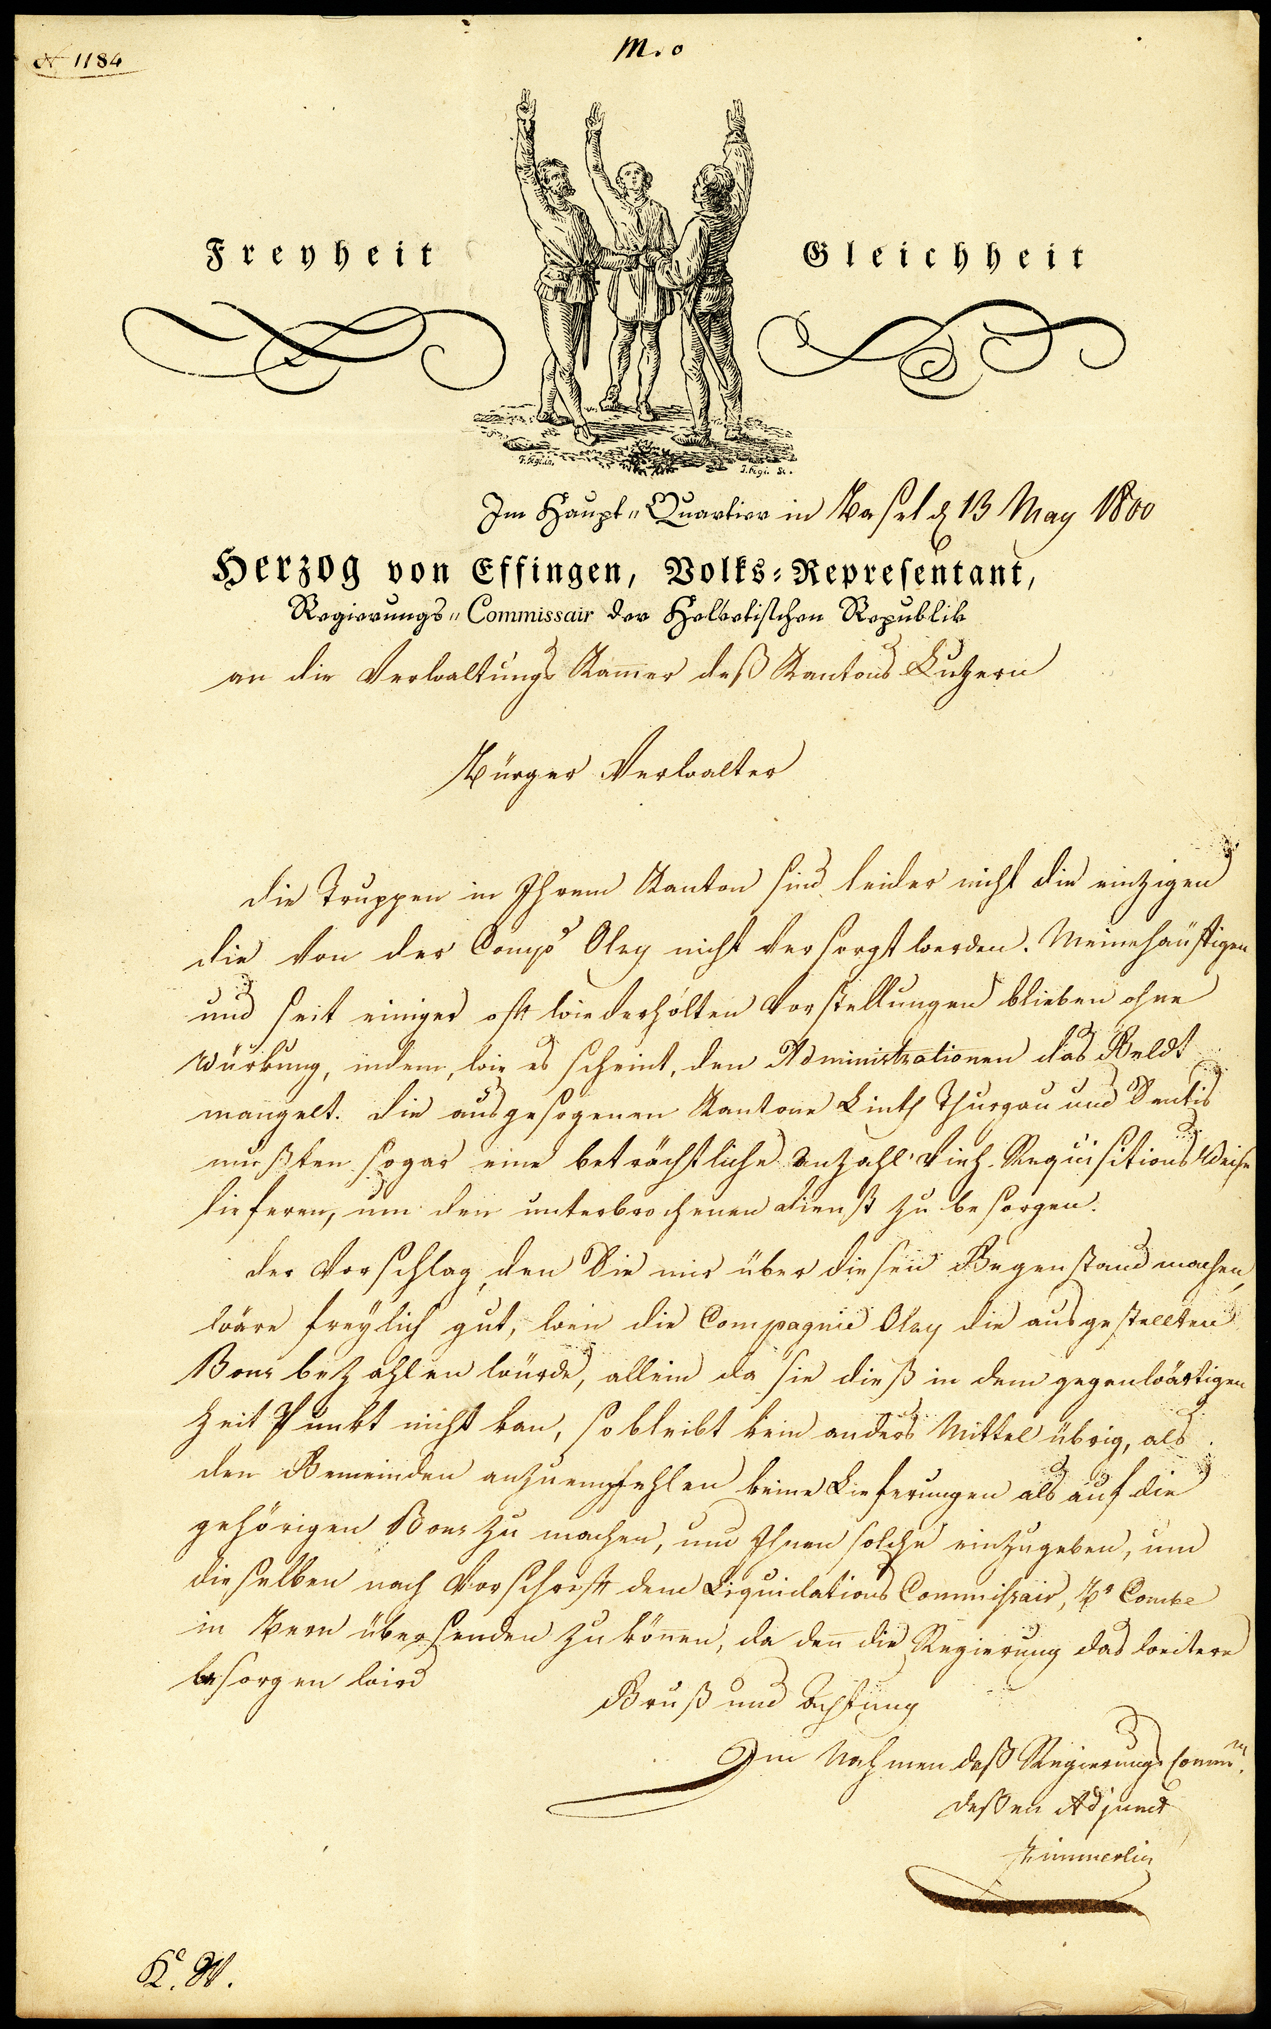 N 1184
M. o
Freyheit
Gleichheit
Im Haupt-Quartier in Basel d 13 May 1800
Herzog von Effingen, Volks-Representant,
Regierungs-Commissair der Helvetischen Republik
an die Verwaltungs Kam̄er deß Kantons Luzern
Bürger Verwalter
die Truppen in Ihrem Kanton sind leider nicht die einzigen
die von der Comp. Olry nicht versorgt werden. Meine häuffigen
und seit einiger oft wiederholten Vorstellungen blieben ohne
Würkung, indem, wie es scheint, den Administrationen das Geldt
mangelt. die ausgesogenen Kantone Linth Thurgau und Sentis
mußten sogar eine beträchtliche Anzahl Vieh Requisitions Weise
lieferen, um den unterbrochenen dienst zu besorgen.
der Vorschlag, den Sie mir über diesen Gegenstand machen,
wäre freylich gut, wen̄ die Compagnie Olry die ausgestellten
Bons bezahlen würde, allein da sie dieß in dem gegenwärtigen
Zeit Punkt nicht kan, so bleibt kein anders Mittel übrig, als
den Gemeinden anzuempfehlen keine Lieferungen als auf die
gehörigen Bons zu machen, und Ihnen solche einzugeben, um
dieselben nach Vorschrift dem Liquidations Commissair, Br Combe
in Bern übersenden zu kön̄en, da den̄ die Regierung das weitere
besorgen wird
Gruß und Achtung
Im Nahmen deß Regierungs Comm.
deßen Adjunct
Zimmerlin
K. W.